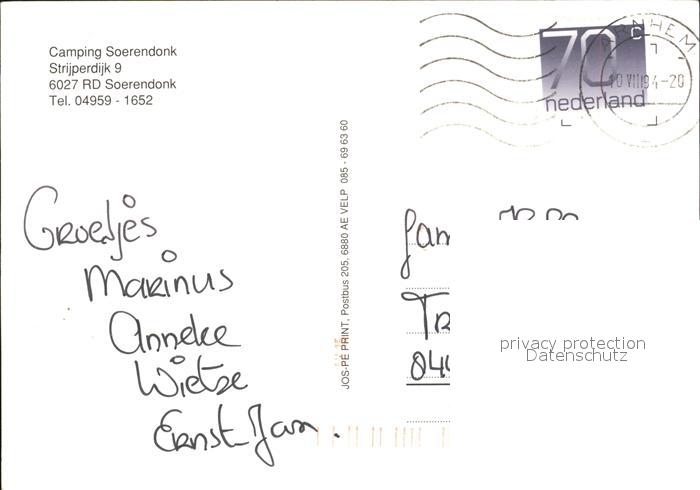 Camping Soerendonk
Strijperdijk 9
6027 RD Soerendonk
Tel. 04959 - 1652
ARNHEM
10 VIII 94-20
70 c
nederland
JOS-PÉ PRINT, Postbus 205, 6880 AE VELP 085 - 69 63 60
Groetjes
Marinus
Anneke
Wietse
Ernst-Jan.
fam
privacy protection
Datenschutz